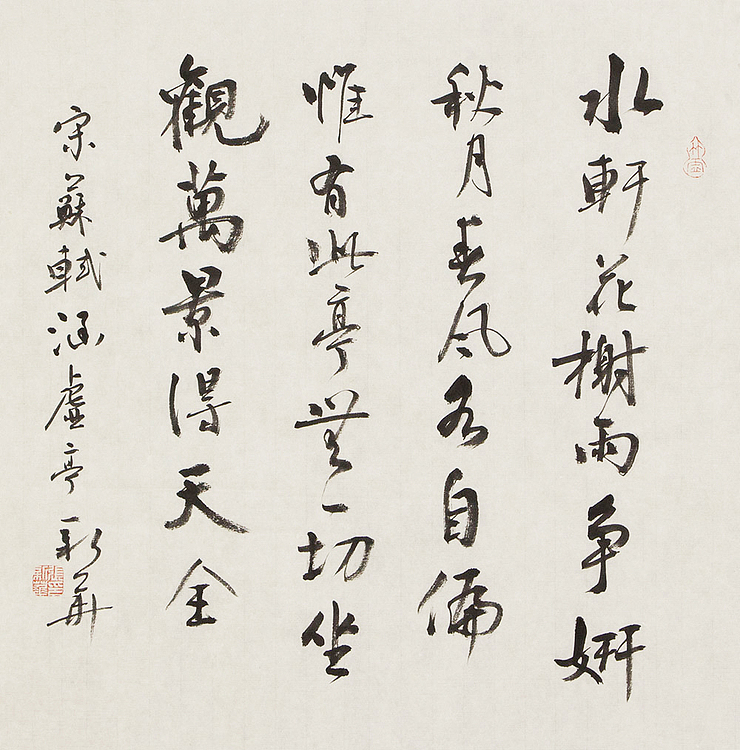 水軒花榭兩爭妍
秋月春風各自偏
惟有此亭無一物坐
觀萬景得天全
宋蘇軾涵虛亭 新華